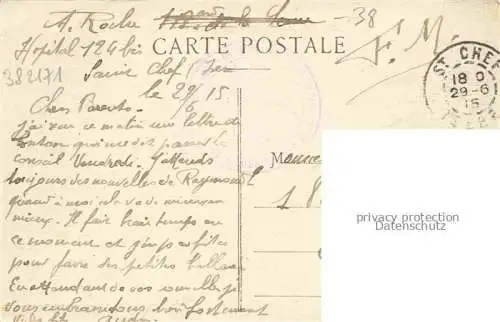 A. Roche
-38
Hopital 124 bis
CARTE POSTALE
F. M.
382171
Saint Chef Isère
le 29/6 15
ST CHEF
18
29-6
15
Chers Parents
J'ai reçu ce matin une lettre de
tonton qui me dit passer le
conseil Vendredi. J'attends
toujours des nouvelles de Raymond
quand à moi cela va de mieux en
mieux. Il fait beau temps en
ce moment et j'en profite
pour faire des petites ballades
En attendant de vos nouvelles je
vous embrasse bien fortement
privacy protection
Datenschutz